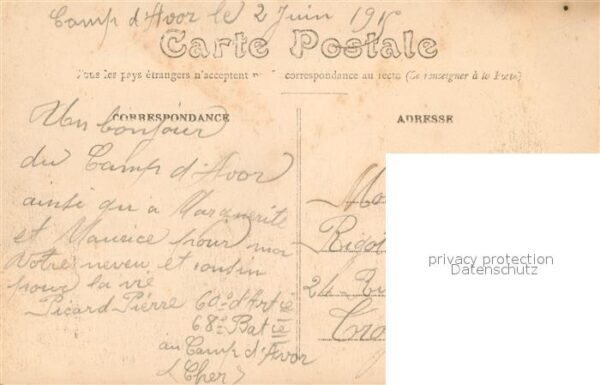 Camp d'Avor le 2 Juin 191
Carte Postale
Tous les pays étrangers n'acceptent correspondance au recto (Se renseigner à la Poste)
CORRESPONDANCE
Un bonjour
du Camp d'Avor
ainsi qu a Marguerite
et Maurice pour moi
Votre neveu et cousin
pour la vie
Picard Pierre 60e d'Artie
68e Batie
au Camp d'Avor
(Cher)
ADRESSE
24
privacy protection
Datenschutz